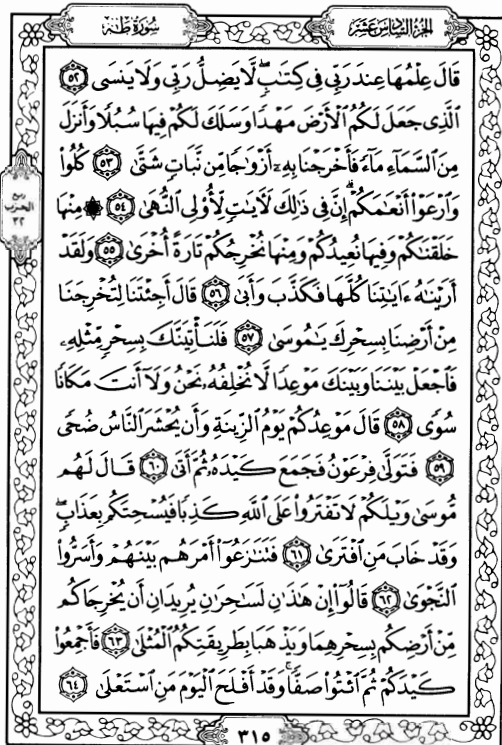 الجزء السادس عشر
سورة طه
قَالَ عِلْمُهَا عِندَ رَبِّى فِى كِتَٰبٍۖ لَّا يَضِلُّ رَبِّى وَلَا يَنسَى ٥٢
ٱلَّذِى جَعَلَ لَكُمُ ٱلْأَرْضَ مَهْدًا وَسَلَكَ لَكُمْ فِيهَا سُبُلًا وَأَنزَلَ
مِنَ ٱلسَّمَآءِ مَآءً فَأَخْرَجْنَا بِهِۦٓ أَزْوَٰجًا مِّن نَّبَاتٍ شَتَّىٰ ٥٣ كُلُوا۟
وَٱرْعَوْا۟ أَنْعَٰمَكُمْۗ إِنَّ فِى ذَٰلِكَ لَءَايَٰتٍ لِّأُو۟لِى ٱلنُّهَىٰ ٥٤ ۞ مِنْهَا
ربع
الحزب
٣٢
خَلَقْنَٰكُمْ وَفِيهَا نُعِيدُكُمْ وَمِنْهَا نُخْرِجُكُمْ تَارَةً أُخْرَىٰ ٥٥ وَلَقَدْ
أَرَيْنَٰهُ ءَايَٰتِنَا كُلَّهَا فَكَذَّبَ وَأَبَىٰ ٥٦ قَالَ أَجِئْتَنَا لِتُخْرِجَنَا
مِنْ أَرْضِنَا بِسِحْرِكَ يَٰمُوسَىٰ ٥٧ فَلَنَأْتِيَنَّكَ بِسِحْرٍ مِّثْلِهِۦ
فَٱجْعَلْ بَيْنَنَا وَبَيْنَكَ مَوْعِدًا لَّا نُخْلِفُهُۥ نَحْنُ وَلَآ أَنتَ مَكَانًا
سُوًى ٥٨ قَالَ مَوْعِدُكُمْ يَوْمُ ٱلزِّينَةِ وَأَن يُحْشَرَ ٱلنَّاسُ ضُحًى
٥٩ فَتَوَلَّىٰ فِرْعَوْنُ فَجَمَعَ كَيْدَهُۥ ثُمَّ أَتَىٰ ٦٠ قَالَ لَهُم
مُّوسَىٰ وَيْلَكُمْ لَا تَفْتَرُوا۟ عَلَى ٱللَّهِ كَذِبًا فَيُسْحِتَكُم بِعَذَابٍۖ
وَقَدْ خَابَ مَنِ ٱفْتَرَىٰ ٦١ فَتَنَٰزَعُوٓا۟ أَمْرَهُم بَيْنَهُمْ وَأَسَرُّوا۟
ٱلنَّجْوَىٰ ٦٢ قَالُوٓا۟ إِنْ هَٰذَٰنِ لَسَٰحِرَٰنِ يُرِيدَانِ أَن يُخْرِجَاكُم
مِّنْ أَرْضِكُم بِسِحْرِهِمَا وَيَذْهَبَا بِطَرِيقَتِكُمُ ٱلْمُثْلَىٰ ٦٣ فَأَجْمِعُوا۟
كَيْدَكُمْ ثُمَّ ٱئْتُوا۟ صَفًّاۚ وَقَدْ أَفْلَحَ ٱلْيَوْمَ مَنِ ٱسْتَعْلَىٰ ٦٤
٣١٥